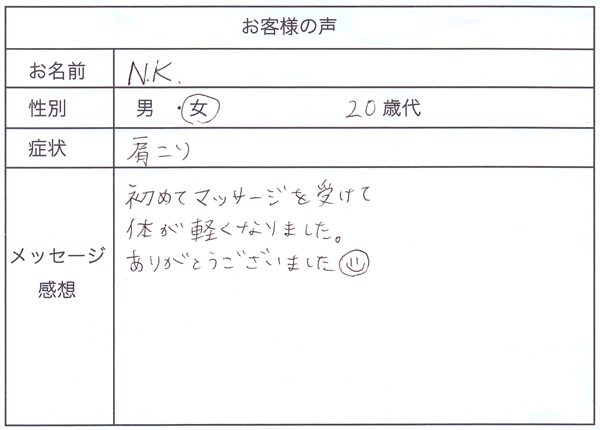 お客様の声
お名前 N.K.
性別 男・女 20歳代
症状 肩こり
メッセージ
感想
初めてマッサージを受けて
体が軽くなりました。
ありがとうございました